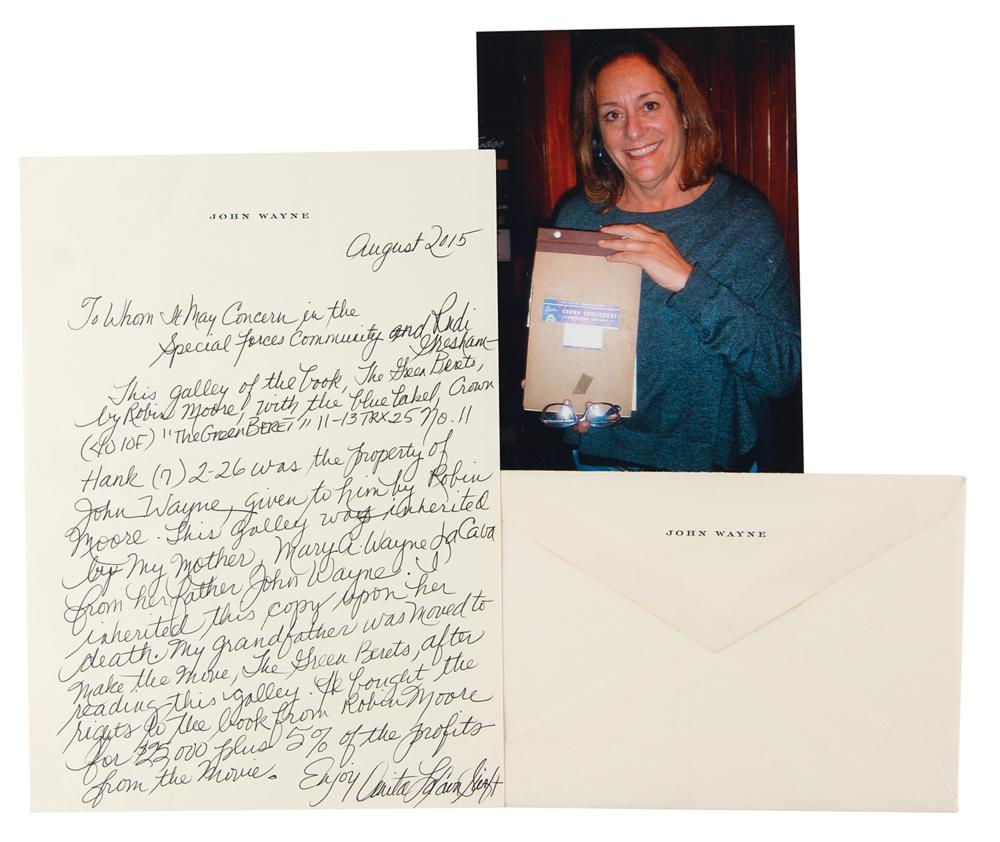 JOHN WAYNE
August 2015
To Whom It May Concern in the
Special Forces Community and Rudi
Gresham—
This galley of the book, The Green Berets,
by Robin Moore, with the blue label, Crown
(4010F) "The Green BERET" 11-13 TRX25 No. 11
Hank (7) 2-26 was the property of
John Wayne, given to him by Robin
Moore. This galley was inherited
by My Mother, Mary A. Wayne LaCava
from her father John Wayne. I
inherited this copy upon her
death. My grandfather was moved to
make the movie, The Green Berets, after
reading this galley. He bought the
rights to the book from Robin Moore
for $25,000 plus 5% of the profits
from the Movie.
Enjoy
Anita
CROWN PUBLISHERS
JOHN WAYNE